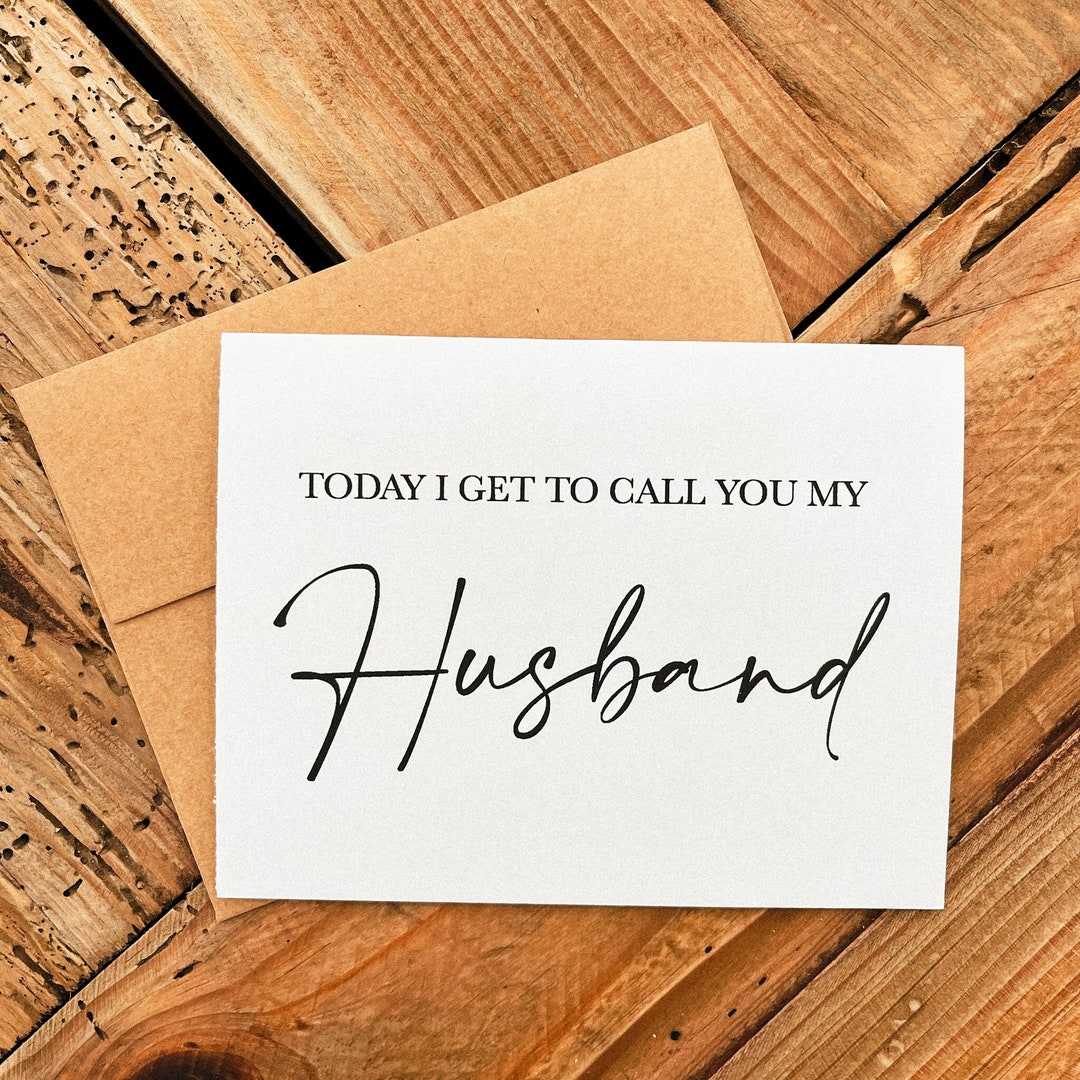 TODAY I GET TO CALL YOU MY
Husband